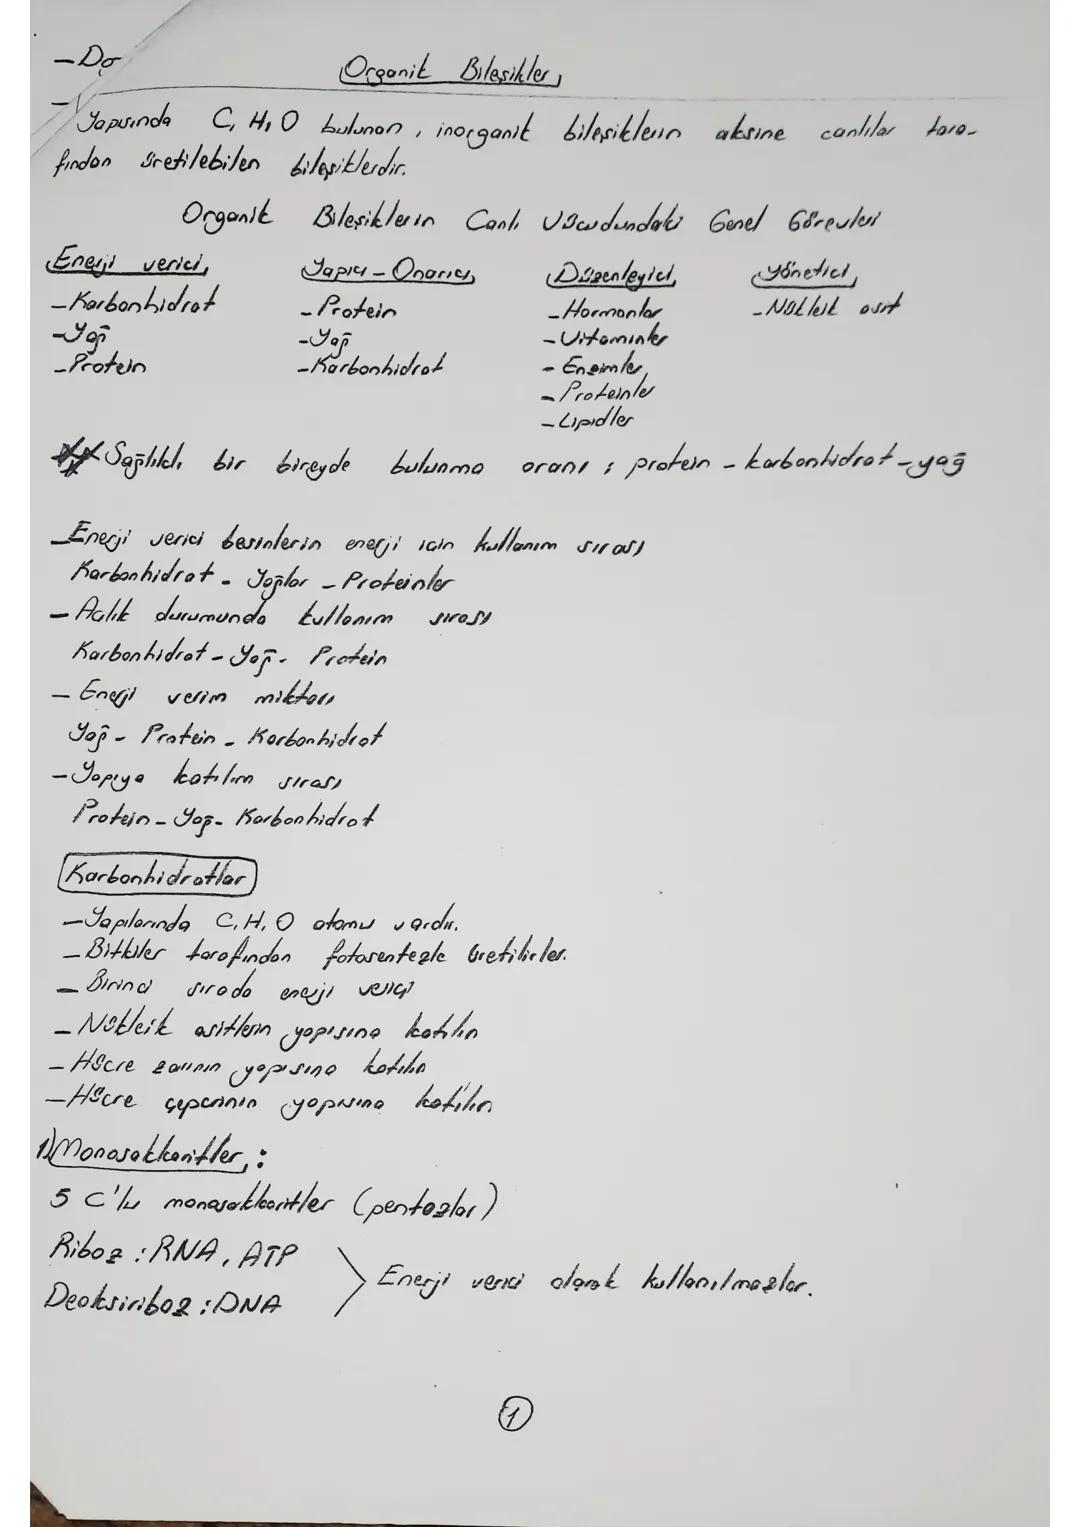 - Do
Organik Bileşikler
Yapısında C, H, O bulunan, inorganik bileşiklerin aksine canlılar tara-
fından üretilebilen bileşiklerdir.
Organik Bileşiklerin Canlı Vücudundaki Genel Görevleri
Enerji verici
- Karbonhidrat
- Yağ
- Protein
Yapıcı - Onarıcı
- Protein
- Yağ
- Karbonhidrat
Düzenleyici
- Hormonlar
- Vitaminler
- Enzimler
- Proteinler
- Lipidler
Yönetici
- Nükleik asit
Sağlıklı bir bireyde bulunma oranı : protein - karbonhidrat - yağ
- Enerji verici besinlerin enerji için kullanım sırası
Karbonhidrat - Yağlar - Proteinler
- Açlık durumunda kullanım sırası
Karbonhidrat - Yağ - Protein
- Enerji verim miktarı
Yağ - Protein - Karbonhidrat
- Yapıya katılım sırası
Protein - Yağ - Karbonhidrat
Karbonhidratlar
- Yapılarında C, H, O atomu vardır.
- Bitkiler tarafından fotosentezle üretilirler.
- Birinci sırada enerji verici
- Nükleik asitlerin yapısına katılır
- Hücre zarının yapısına katılır
- Hücre çeperinin yapısına katılır
1) Monosakkaritler :
5 C'lu monosakkaritler (pentozlar)
Riboz : RNA, ATP
Deoksiriboz : DNA
Enerji verici olarak kullanılmazlar.
1